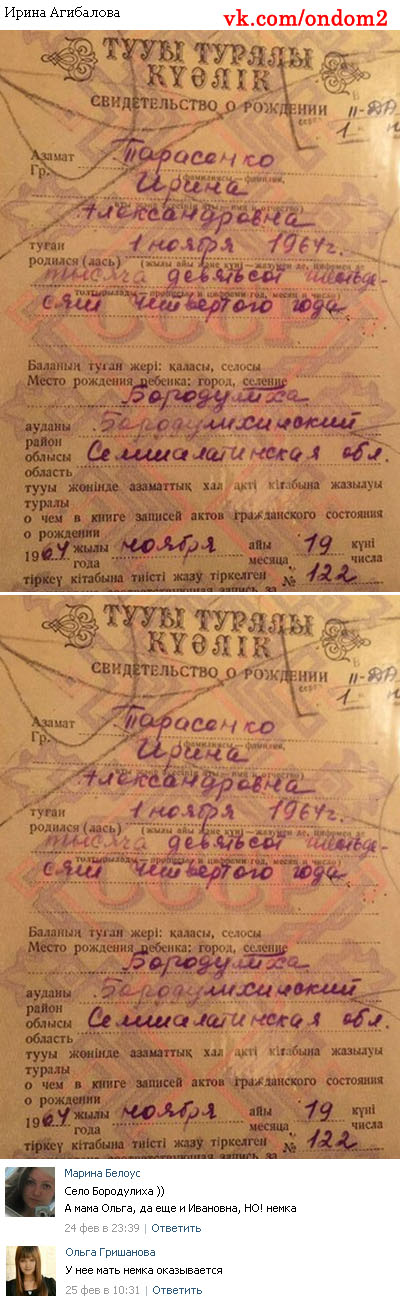 Ирина Агибалова
vk.com/ondom2
ТУУЫ ТУРАЛЫ
КУӘЛІК
СВИДЕТЕЛЬСТВО О РОЖДЕНИИ
II-ДА
1
Азамат
Гр.
Тарасенко
(фамилиясы – фамилия,
Ирина
Александровна
туған 1 ноября 1964г.
родился (лась) (жылы айы және күні)
тысяча девятьсот шестьде-
сят четвертого года
Баланың туған жері: қаласы, селосы
Место рождения ребенка: город, селение
Бородулиха
ауданы Бородулихинский
район
облысы Семипалатинская обл.
область
тууы жөнінде азаматтық хал акті кітабына жазылуы
туралы
о чем в книге записей актов гражданского состояния
о рождении
1964 жылы ноября айы 19 күні
года месяца числа
тіркеу кітабына тиісті жазу тіркелген № 122
ТУУЫ ТУРАЛЫ
КУӘЛІК
СВИДЕТЕЛЬСТВО О РОЖДЕНИИ
II-ДА
1
Азамат
Гр.
Тарасенко
(фамилиясы – фамилия,
Ирина
Александровна
туған 1 ноября 1964г.
родился (лась) (жылы айы және күні)
тысяча девятьсот шестьде-
сят четвертого года
Баланың туған жері: қаласы, селосы
Место рождения ребенка: город, селение
Бородулиха
ауданы Бородулихинский
район
облысы Семипалатинская обл.
область
тууы жөнінде азаматтық хал акті кітабына жазылуы
туралы
о чем в книге записей актов гражданского состояния
о рождении
1964 жылы ноября айы 19 күні
года месяца числа
тіркеу кітабына тиісті жазу тіркелген № 122
Марина Белоус
Село Бородулиха ))
А мама Ольга, да еще и Ивановна, НО! немка
24 фев в 23:39 | Ответить
Ольга Гришанова
У нее мать немка оказывается
25 фев в 10:31 | Ответить